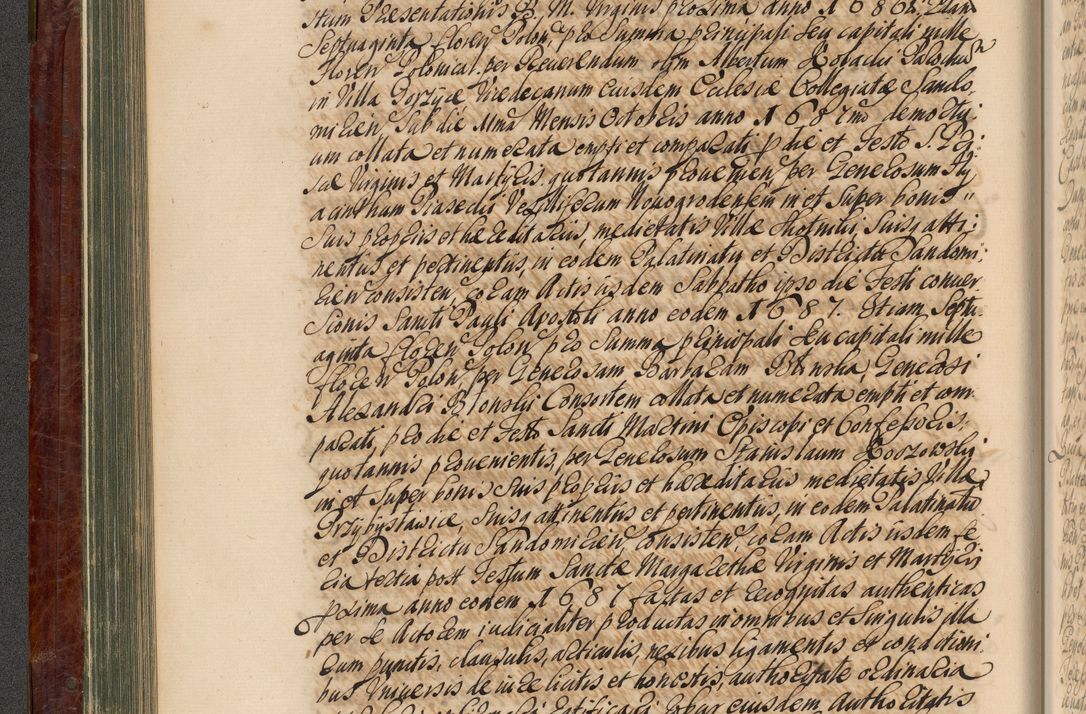 stum Præsentationis B. M. Virginis proxima anno 1686.
Septuaginta floren Polon, pro Summa principali seu capitali mille
floren Polonical per Reverendum olim Albertum
in Villa Gorzyce Vicedecanum eiusdem Ecclesiæ Collegiatæ Sando,
mirien, Sub die Mensis Octobris anno 1687mo
um collata et numerata empti et comparati p die et Festo S.
Virginis et Martyris quotannis provenien per Generosum Hy
acintham Piasecki Novogrodensem in et Super bonis
Suis propriis et hæreditariis, medietatis Villæ Suisq atti:
nentus et pertinentus, in eodem Palatinatu et Districtu Sandomi:
rien consisten, coram Actis iisdem Sabbatho ipso die Festi conver
Sionis Sancti Pauli Apostoli anno eodem 1687. Etiam Septu
aginta floren Polon pro Summa principali Seu capitali mille
floren Polon per Generosam Barbaram Generosi
Alexandri Consortem collata et numerata empti et com
parati, pro die et Festo Sancti Martini Episcopi et Confessoris.
quotannis provenientis, per Generosum Stanislaum Koszowski
in et Super bonis Suis propriis et hæreditariis medietatis Villæ
Przybysławice, Suisq attinentus et pertinentus, in eodem Palatinatu
et Districtu Sandomirien, consisten, coram Actis iisdem fe
ria tertia post Festum Sanctæ Margarethæ Virginis et Martyris
proxima anno eodem 1687 factas et authenticas
per se Actorem iudicialiter productas in omnibus et Singulis illa
rum punctis, clausulis, articulis, nexibus ligamentis et conditioni
bus Universis de iure licitis et honestis, authoritate ordinaria
ratificari eiusdem Authoritatis